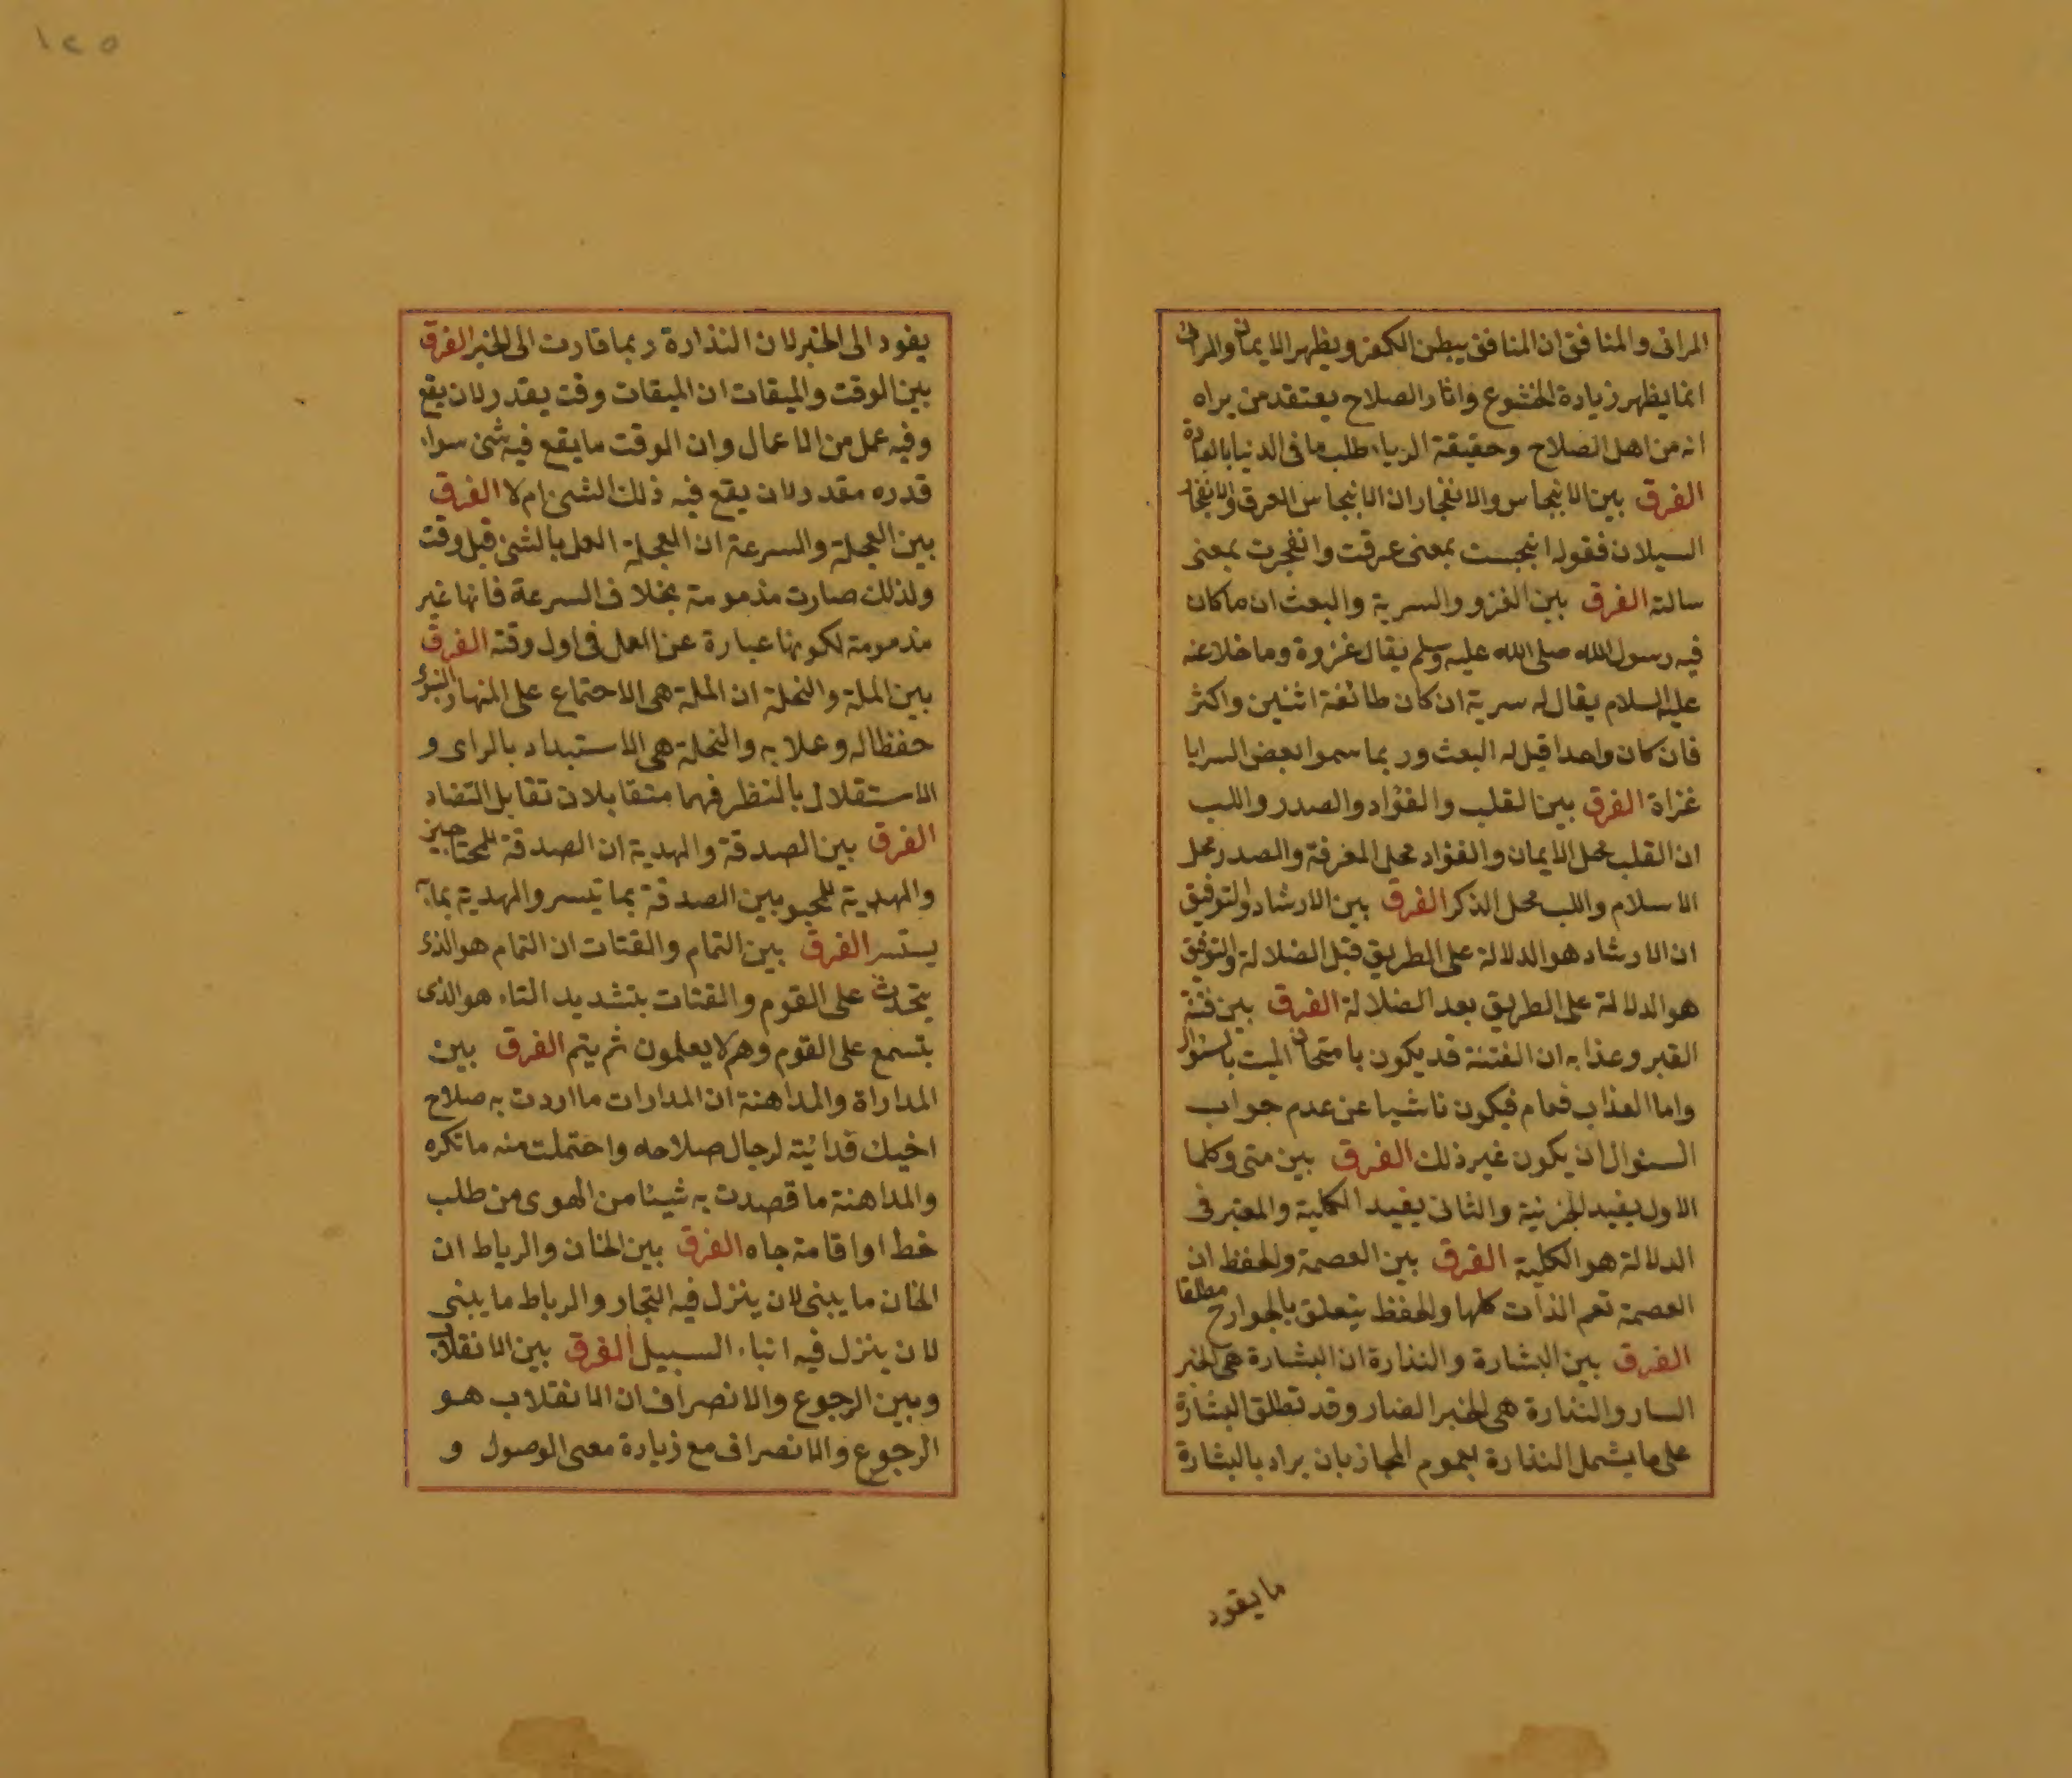 المرائى والمنافق ان المنافق يبطن الكفر ويظهر الايمان والمرائى
انما يظهر زيادة الخشوع واثار الصلاح يعتقد من يراه
انه من اهل الصلاح وحقيقة الرياء طلب ما فى الدنيا بالعبادة
الفرق بين الانبجاس والانفجار ان الانبجاس العرق والانفجار
السيلان فقوله انبجست بمعنى عرقت وانفجرت بمعنى
سالته الفرق بين الغزو والسرية والبعث ان ما كان
فيه رسول الله صلى الله عليه وسلم يقال غزوة وما خلا عنه
عليه السلام يقال له سرية ان كان طائفة اثنين واكثر
فان كان واحدا قيل له البعث وربما سموا بعض السرايا
غزاة الفرق بين القلب والفؤاد والصدر واللب
ان القلب محل الايمان والفؤاد محل المعرفة والصدر محل
الاسلام واللب محل الذكر الفرق بين الارشاد والتوفيق
ان الارشاد هو الدلالة على الطريق قبل الضلالة والتوفيق
هو الدلالة على الطريق بعد الضلالة الفرق بين فتنة
القبر وعذابه ان الفتنة قد يكون بامتحان الميت بالسؤال
واما العذاب فعام فيكون ناشيا عن عدم جواب
السئوال ان يكون غير ذلك الفرق بين متى وكلما
الاول يفيد الجزئية والثانى يفيد الكلية والمعتبر فى
الدلالة هو الكلية الفرق بين العصمة والحفظ ان
العصمة تعم الذات كلها والحفظ يتعلق بالجوارح مطلقا
الفرق بين البشارة والنذارة ان البشارة هى الخبر
السار والنذارة هى الخبر الضار وقد تطلق البشارة
على ما يشمل النذارة لعموم المجاز بان يراد بالبشارة
ما يقود
١٢٥
يقود الى الخير لان النذارة ربما قادت الى الخير الفرق
بين الوقت والميقات ان الميقات وقت يقدر لان يقع
وفيه عمل من الاعمال وان الوقت ما يقع فيه شئ سواء
قدره مقدر لان يقع فيه ذلك الشئ ام لا الفرق
بين العجلة والسرعة ان العجلة العمل بالشئ قبل وقت
ولذلك صارت مذمومة بخلاف السرعة فانها غير
مذمومة لكونها عبارة عن العمل فى اول وقته الفرق
بين الملة والنحلة ان الملة هى الاجتماع على المنهاج النبوى
حفظا له وعملا به والنحلة هى الاستبداد بالراى و
الاستقلال بالنظر فهما متقابلان تقابل التضاد
الفرق بين الصدقة والهدية ان الصدقة للمحتاجين
والهدية للمحبوبين الصدقة بما تيسر والهدية بما
يستسر الفرق بين النمام والقتات ان النمام هو الذى
يتحدث على القوم والقتات بتشديد التاء هو الذى
يتسمع على القوم وهم لا يعلمون ثم ينم الفرق بين
المداراة والمداهنة ان المدارات ما اردت به صلاح
اخيك فدائيته لرجال صلاحه واحتملت منه ما تكره
والمداهنة ما قصدت به شيئا من الهوى من طلب
خط او اقامة جاه الفرق بين الخان والرباط ان
الخان ما يبنى لان ينزل فيه التجار والرباط ما يبنى
لان ينزل فيه ابناء السبيل الفرق بين الانقلاب
وبين الرجوع والانصراف ان الانقلاب هو
الرجوع والانصراف مع زيادة معنى الوصول و